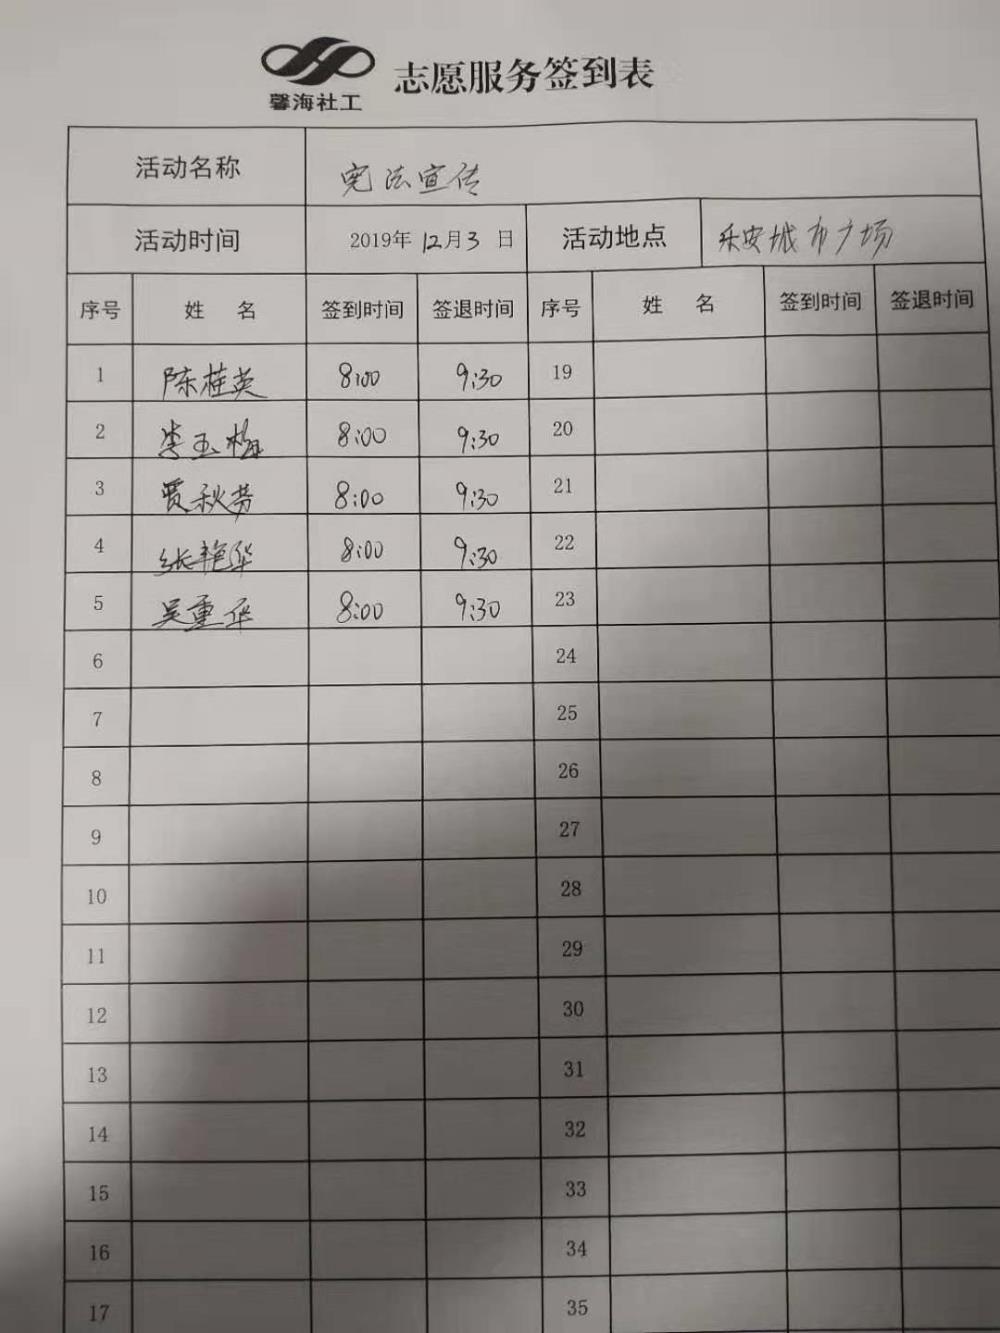 馨海社工 志愿服务签到表
活动名称 宪法宣传
活动时间 2019年12月3日 活动地点 乐安城市广场
序号 姓名 签到时间 签退时间 序号 姓名 签到时间 签退时间
1 陈桂英 8:00 9:30 19
2 李玉梅 8:00 9:30 20
3 贾秋芳 8:00 9:30 21
4 张艳华 8:00 9:30 22
5 吴重华 8:00 9:30 23
6 24
7 25
8 26
9 27
10 28
11 29
12 30
13 31
14 32
15 33
16 34
17 35